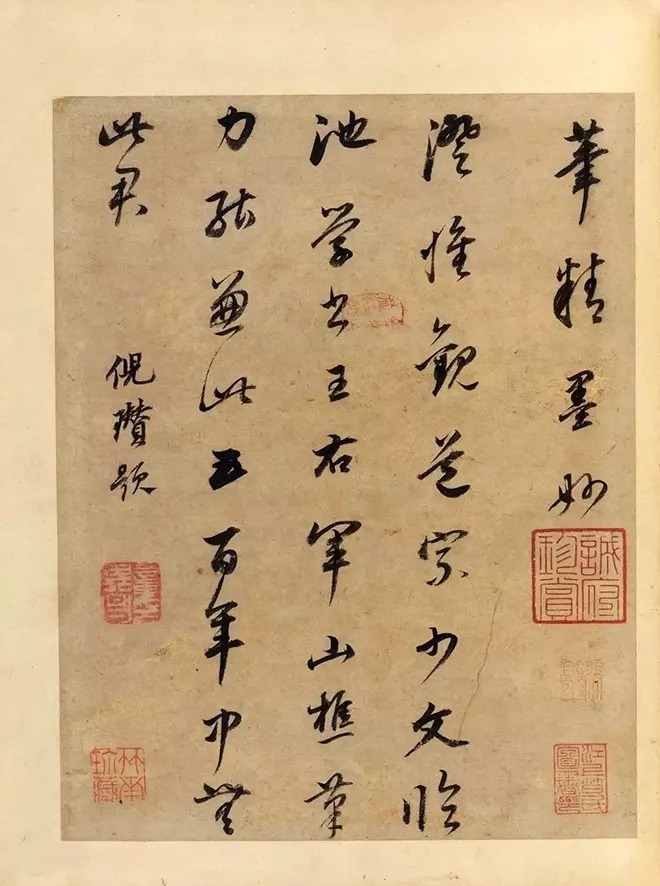 筆精墨妙
澄惟觀道宗少文臨
池學書王右軍山樵筆
力能兼此五百年中無
此君
倪瓚題
誠府珍賞